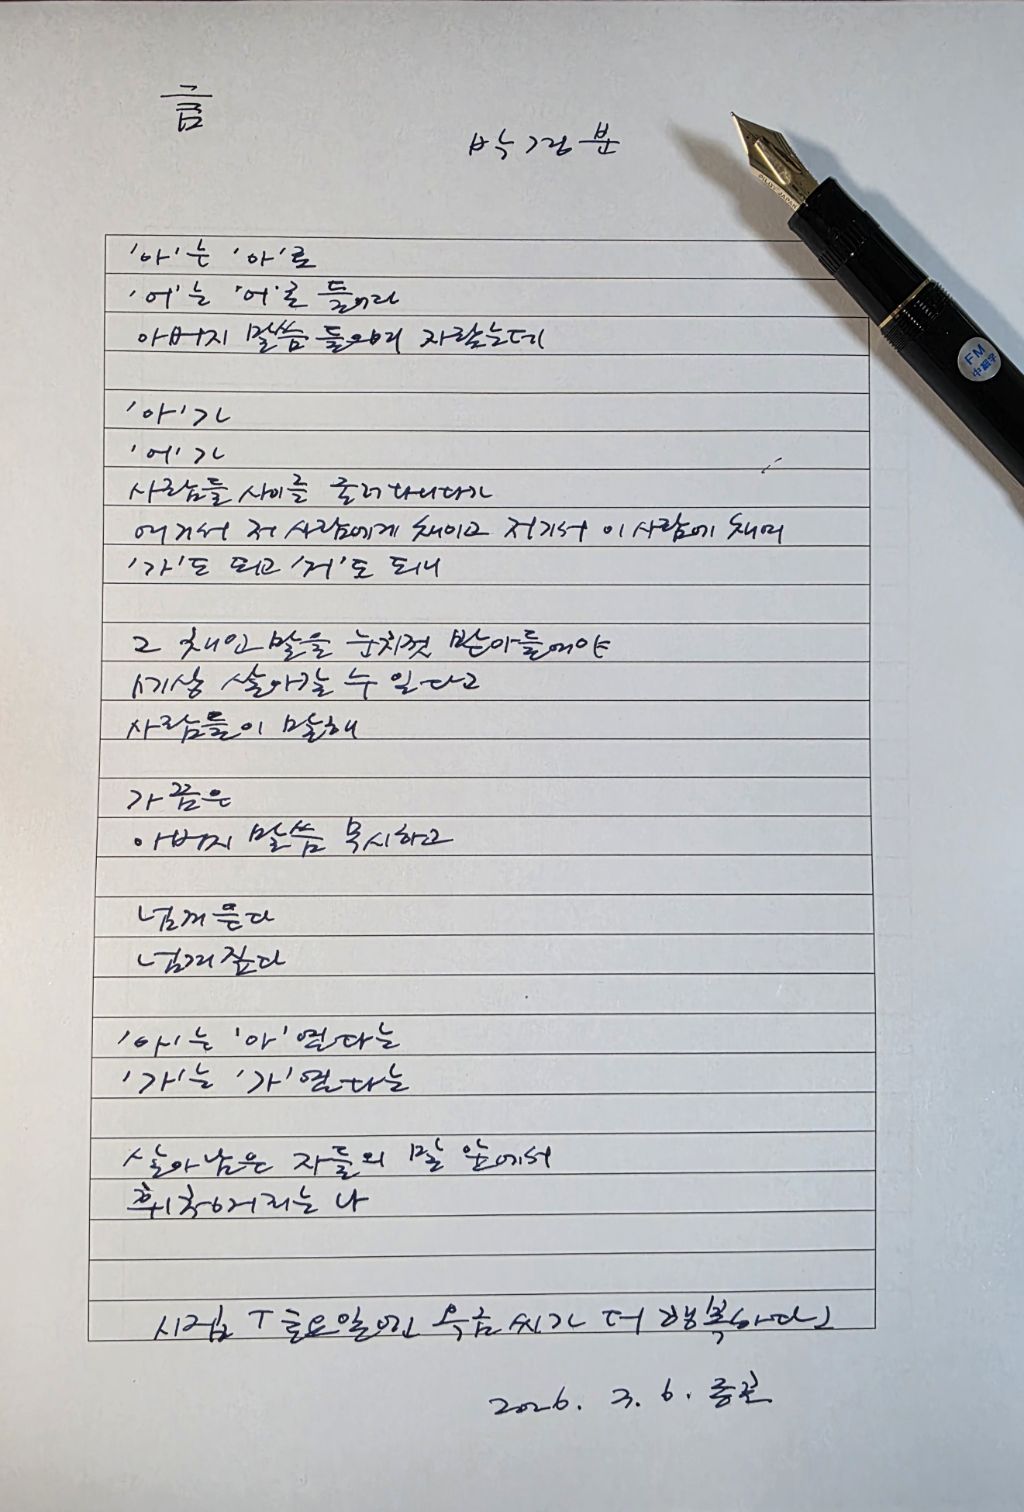 言
박경분
PILOT JAPAN
FM
中細字
'아'는 '아'로
'어'는 '어'로 들어라
아버지 말씀 들으며 자랐는데
'아'가
'어'가
사람들 사이를 굴러다니다가
여기서 저 사람에게 채이고 저기서 이 사람에 채여
'가'도 되고 '거'도 되니
그 채인 말을 눈치껏 받아들여야
세상 살아갈 수 있다고
사람들이 말해
가끔은
아버지 말씀 묵시하고
넘겨 듣다
넘겨짚다
'아'는 '아'였다는
'가'는 '가'였다는
살아남은 자들의 말 앞에서
휘청거리는 나
시집 「금요일엔 옥금 씨가 더 행복하다」
2026. 3. 6.